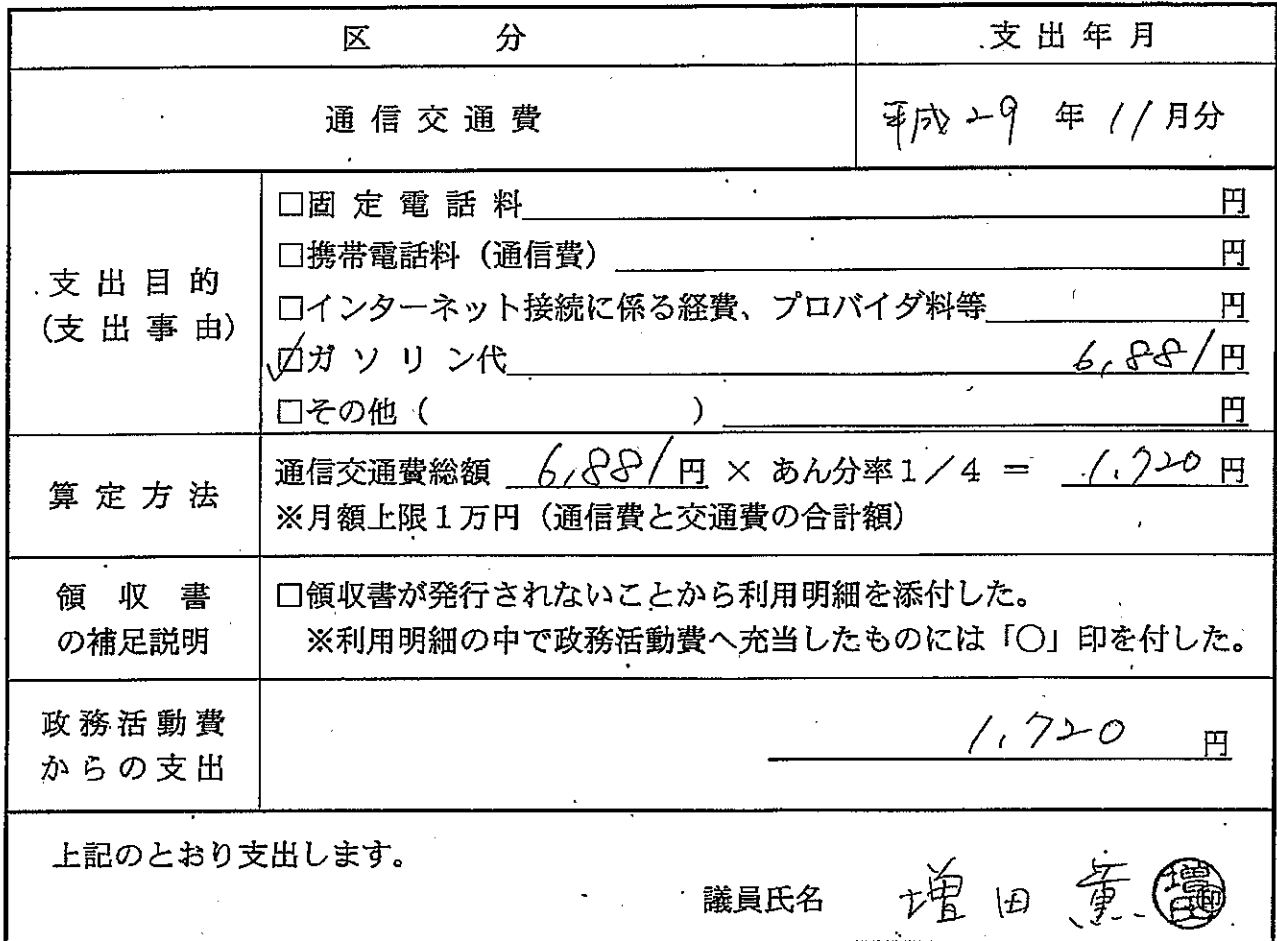 区分 支出年月
通信交通費 平成29年11月分
支出目的
(支出事由)
□固定電話料 円
□携帯電話料(通信費) 円
□インターネット接続に係る経費、プロバイダ料等 円
☑ガソリン代 6,881円
□その他( ) 円
算定方法
通信交通費総額 6,881円 × あん分率1/4 = 1,720円
※月額上限1万円(通信費と交通費の合計額)
領収書
の補足説明
□領収書が発行されないことから利用明細を添付した。
※利用明細の中で政務活動費へ充当したものには「○」印を付した。
政務活動費
からの支出
1,720 円
上記のとおり支出します。
議員氏名 増田 薫 増田印